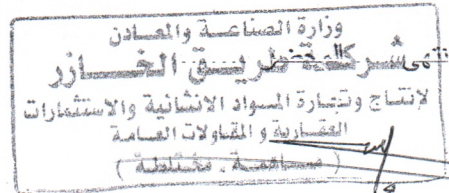 وزارة الصناعـــة والمعـــادن
شركـــة طريـــق الخـــازر
لإنتاج وتجارة المـواد الانشائية والاستثمارات
العقـارية و المقـاولات العـامة
( مساهمـة . مختلطـة )